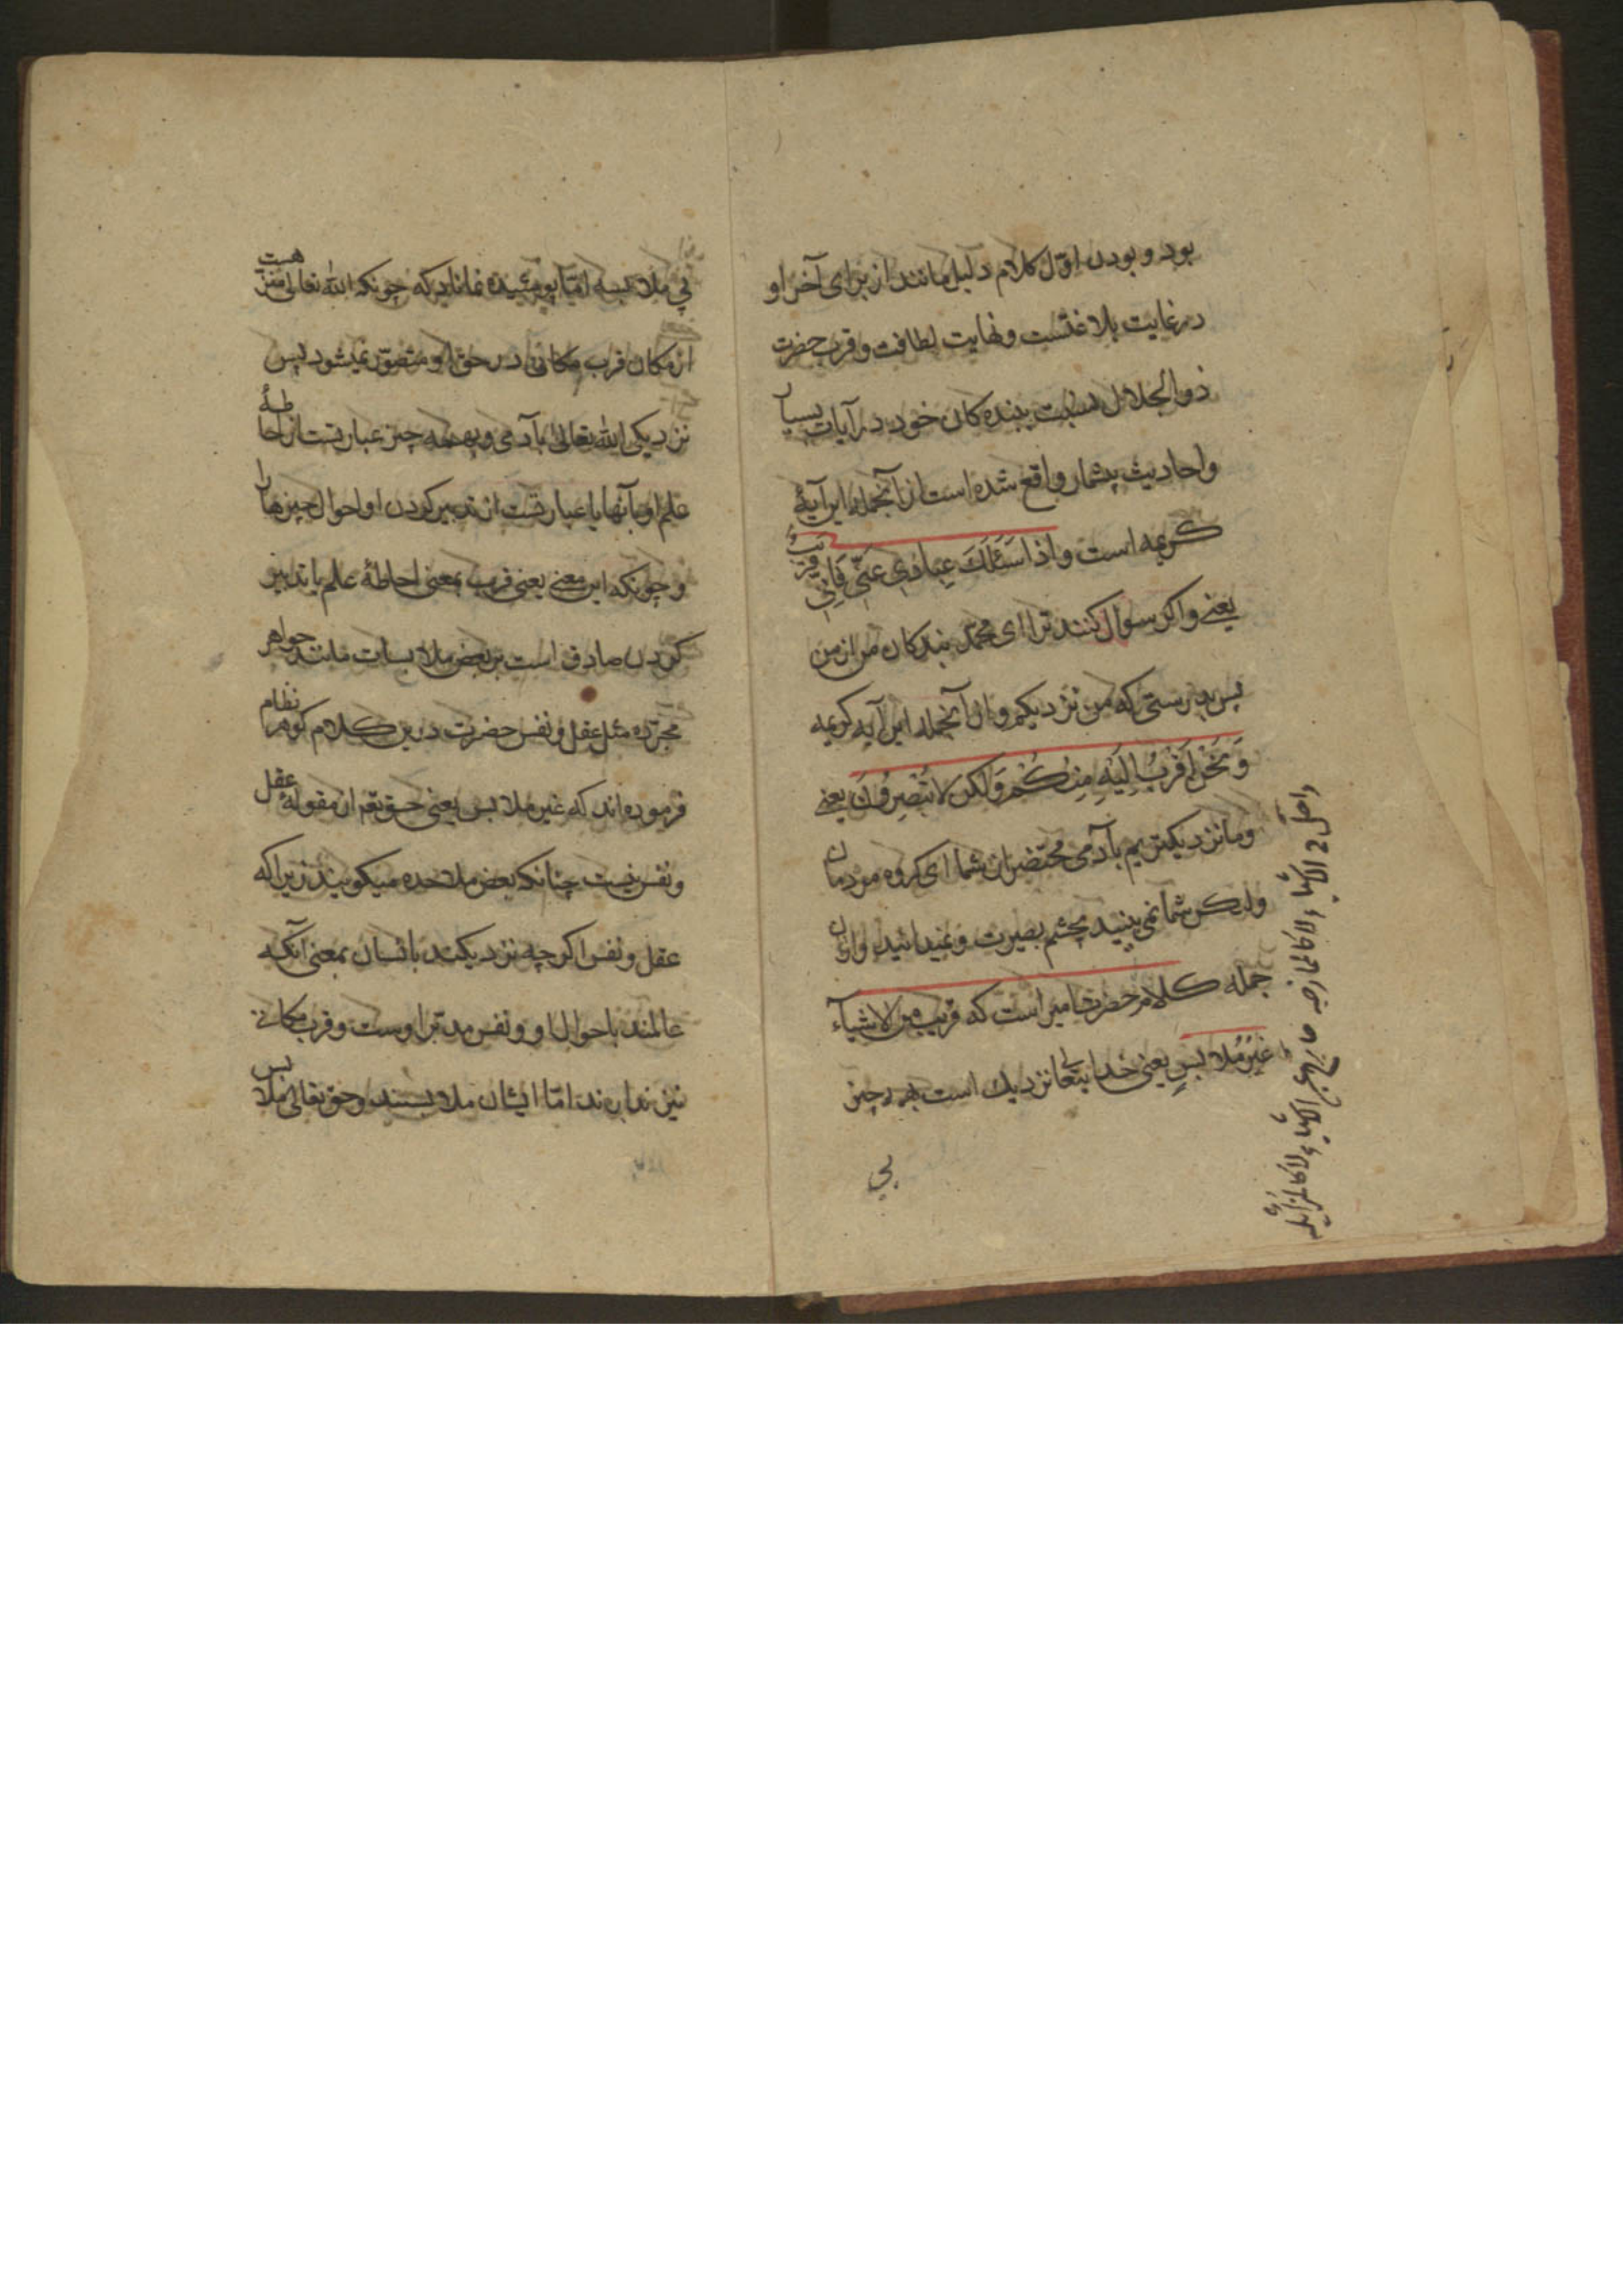 بود و بودن اوّل کلام دلیل مانند از برای آخر او
در غایت بلاغتست و نهایت لطافت و قرب حضرت
ذوالجلال نسبت ببنده کان خود در آیات بسیار
و احادیث بیشمار واقع شده است از آنجمله این آیهٔ
کریمه است و اذا سَئَلَکَ عِبادی عَنّی فَاِنّی قریبٌ
یعنی و اکر سوال کنند ترا ای محمّد بندکان من از من
پس بدرستی که من نزدیکم و از آنجمله این آیه کریمه
وَ نَحْنُ اَقْرَبُ اِلَیْهِ مِنْکُمْ وَلکن لا تُبْصِرُونَ یعنی
و ما نزدیکتریم بآدمی محتضر از شما ای کروه مردمان
ولیکن شما نمی بینید بچشم بصیرت و نمیدانید و ازان
جمله کلام حضرت امیر است که قریب من الاشیآء
غیرُ مُلابسٍ یعنی خدایتعا نزدیک است بهمه چیز
بی
بی ملابسه امّا پوشیده نماناد که چونکه الله تعالی منزّهست
از مکان قرب مکانی در حق او متصوّر نمیشود پس
نزدیکی الله تعالی بآدمی و بهمه چیز عبارتست از احاطهٔ
علم او بآنها یا عبارتست از تدبیر کردن او احوال چیزها را
و چونکه این معنی یعنی قرب بمعنی احاطهٔ علم یا تدبیر
کردن صادق است بر بعض ملابسات مانند جواهر
مجرّده مثل عقل و نفس حضرت درین کلام کوهر نظام
فرموده اند که غیر ملابس یعنی حق تعم از مقولهٔ عقل
و نفس نیست چنانکه بعض ملاحده میکویند زیرا که
عقل و نفس اکرچه نزدیکند بانسان بمعنی آنکه
عالمند باحوال او و نفس مدبّر اوست و قرب مکانی
نیز ندارند امّا ایشان ملابسند و حق تعالی ملابس